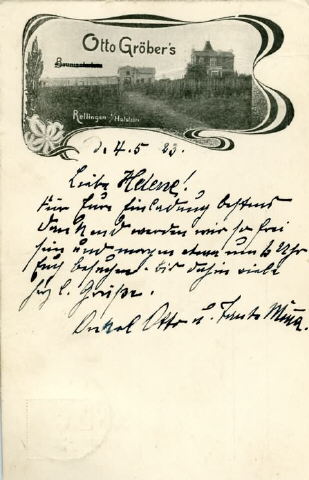 Otto Gröber's
Baumschulen
Rellingen i/Holstein
d. 4.5 03.
Liebe Helene!
Für Eure Einladung bestens
dankend werden wir so frei
sein und morgen etwa um 6 Uhr
Euch besuchen. Bis dahin viele
herzl. Grüße.
Onkel Otto u. Tante Mima.